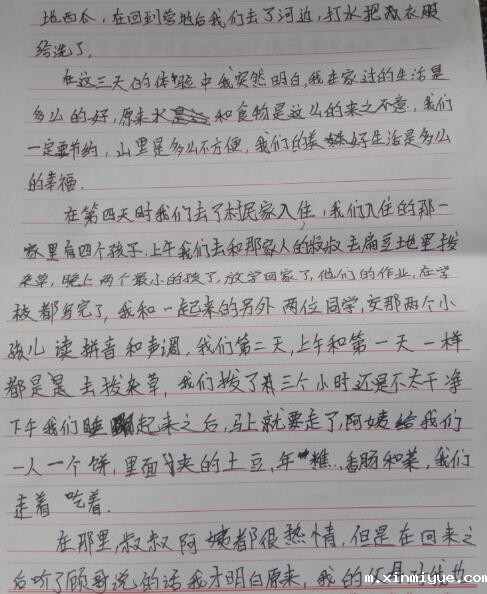 地西瓜，在回到营地后我们去了河边，打水把衣服
给洗了，
在这三天的体验中我突然明白，我在家过的生活是
多么的好，原来水和食物是这么的来之不意，我们
一定要节约，山里是多么不方便，我们的美好生活是多么
的幸福．
在第四天时我们去了村民家入住，我们入住的那一
家里有四个孩子，上午我们去和那家人的叔叔去扁豆地里拔
杂草，晚上两个最小的孩子，放学回家了，他们的作业，在学
校都写完了，我和一起来的另外两位同学，交那两个小
孩儿读拼音和声调，我们第二天，上午和第一天一样
都是去拔杂草，我们拔了有三个小时还是不太干净
下午我们睡起来之后，马上就要走了，阿姨给我们
一人一个饼，里面夹的土豆，年糕，香肠和菜，我们
走着吃着．
在那里，叔叔阿姨都很热情，但是在回来之
后听了顾哥说的话我才明白原来，我的
m.xinmiyue.com